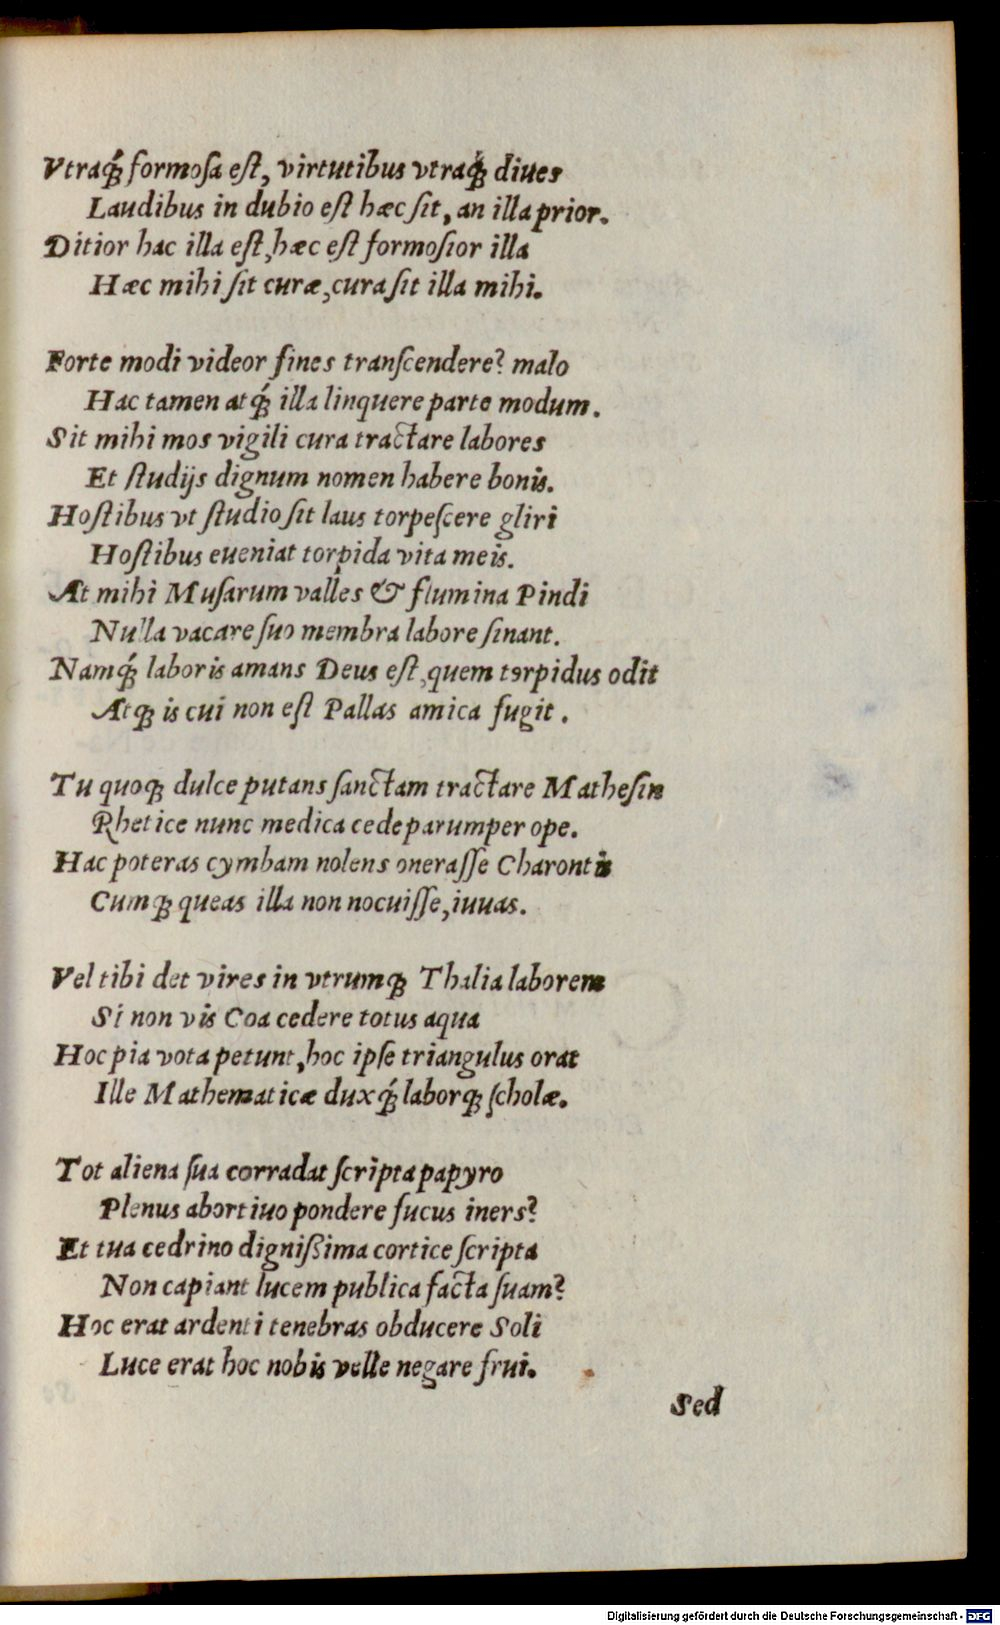 Vtraq́; formoſa eſt, virtutibus vtraq́; diues
Laudibus in dubio eſt hæc ſit, an illa prior.
Ditior hac illa eſt, hæc eſt formoſior illa
Hæc mihi ſit curæ, cura ſit illa mihi.
Forte modi videor fines tranſcendere? malo
Hac tamen atq́; illa linquere parte modum.
Sit mihi mos vigili cura tractare labores
Et ſtudijs dignum nomen habere bonis.
Hoſtibus vt ſtudio ſit laus torpeſcere gliri
Hoſtibus eueniat torpida vita meis.
At mihi Muſarum valles & flumina Pindi
Nulla vacare ſuo membra labore ſinant.
Namq́; laboris amans Deus eſt, quem torpidus odit
Atq; is cui non eſt Pallas amica fugit.
Tu quoq; dulce putans ſanctam tractare Matheſin
Rhetice nunc medica cede parumper ope.
Hac poteras cymbam nolens oneraſſe Charontis
Cumq; queas illa non nocuiſſe, iuuas.
Vel tibi det vires in vtrumq; Thalia laborem
Si non vis Coa cedere totus aqua
Hoc pia vota petunt, hoc ipſe triangulus orat
Ille Mathematicæ duxq́; laborq; ſcholæ.
Tot aliena ſua corradat ſcripta papyro
Plenus abortiuo pondere fucus iners?
Et tua cedrino digniſsima cortice ſcripta
Non capiant lucem publica facta ſuam?
Hoc erat ardenti tenebras obducere Soli
Luce erat hoc nobis velle negare frui.
Sed
Digitalisierung gefördert durch die Deutsche Forschungsgemeinschaft - DFG